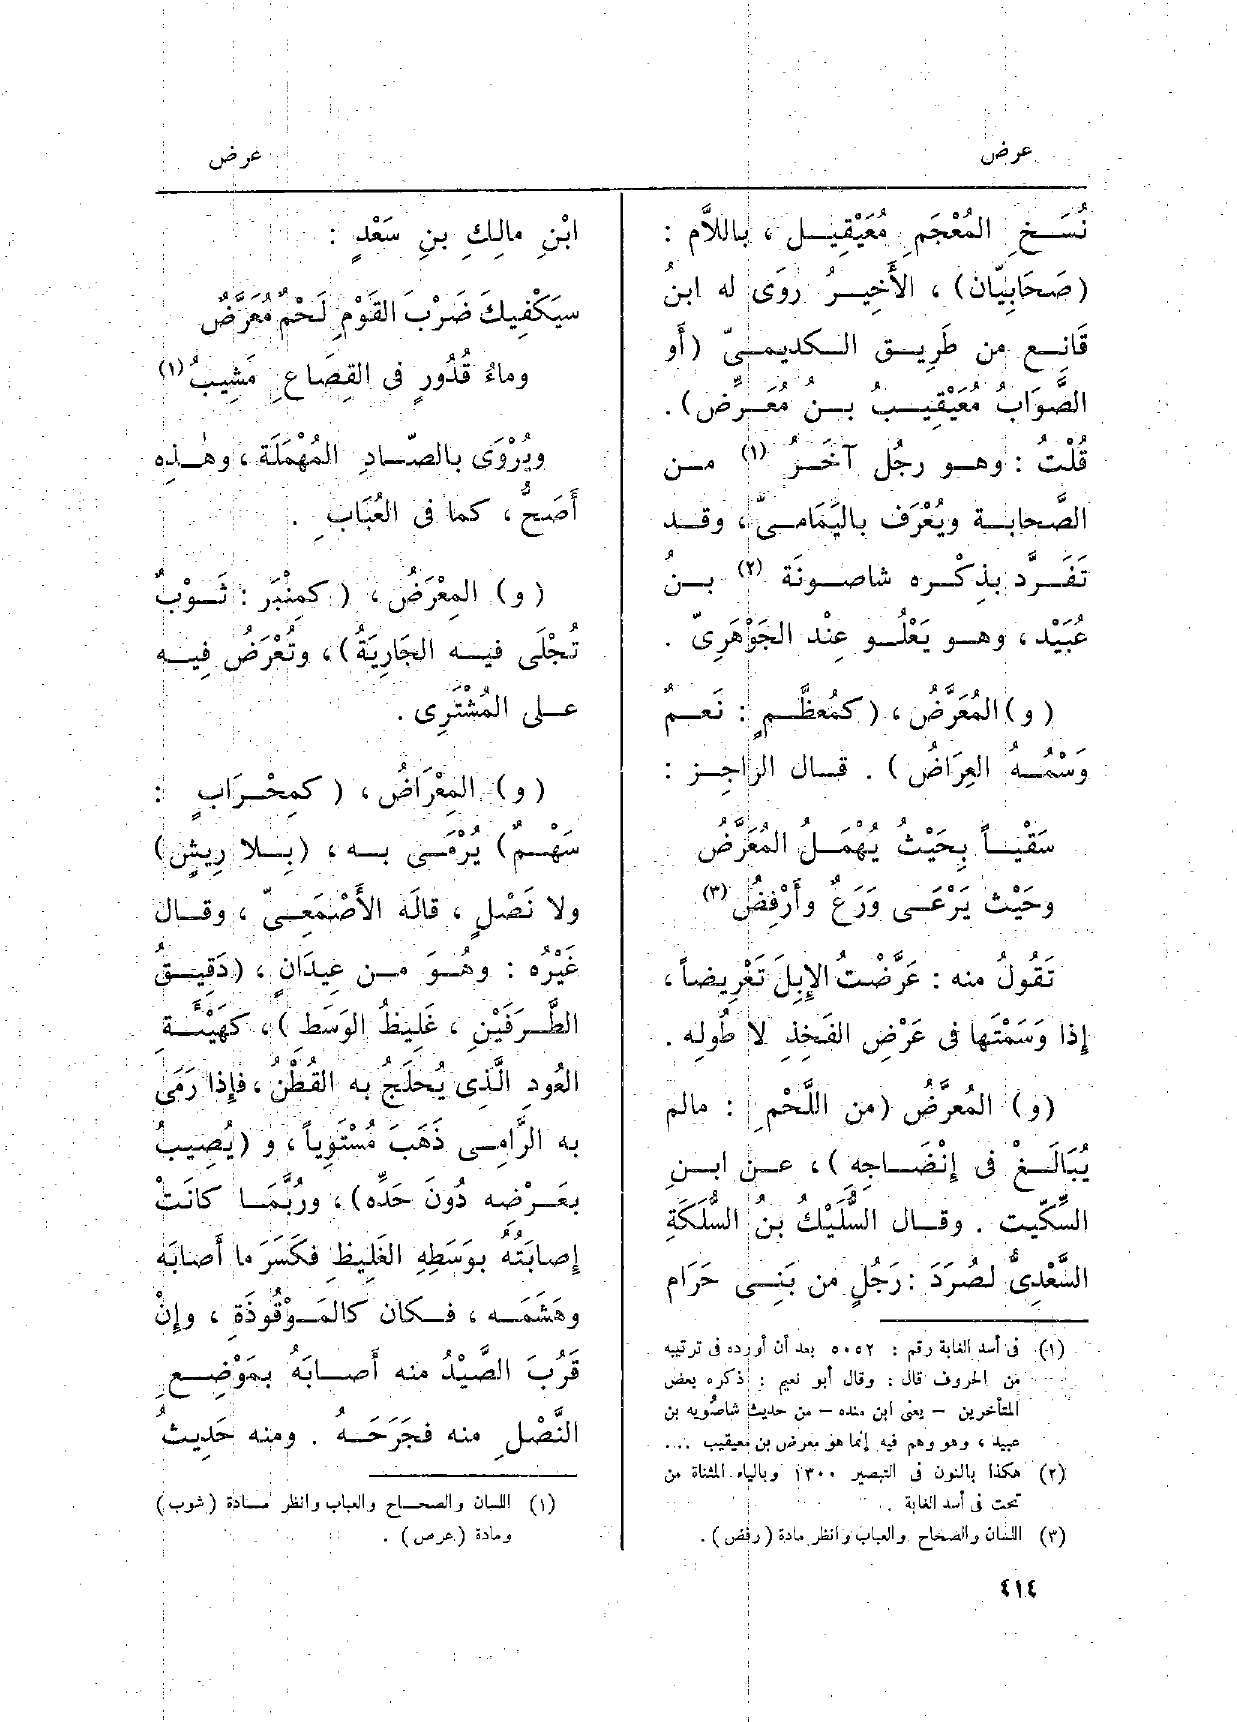 عرض
عرض
نُسَـخِ المُعْجَمِ مُعَيْقِيـل ، باللاَّم :
(صَحَابِيّان) ، الأَخِيـرُ روَى له ابنُ
قَانِـع من طَرِيـق الـكديمـىّ (أَو
الصَّوَابُ مُعَيْقِيـبُ بـنُ مُعَـرِّض) .
قُلْتُ : وهـو رجُل آخَـرُ (١) مـن
الصَّحابـة ويُعْرَف باليَمَامـىّ ، وقـد
تَفَـرَّد بذِكْـره شاصـونَة (٢) بـنُ
عُبَيْد ، وهـو يَعْلُـو عِنْد الجَوْهَرِىّ .
(و) المُعَرَّضُ ، (كمُعظَّـمٍ : نَعـمٌ
وَسْمُـهُ العِرَاضُ) . قـال الراجـز :
سَقْيـاً بِحَيْثُ يُهْمَـلُ المُعَرَّض
وحَيْث يَرْعَـى وَرَعٌ وأَرْفِضُ (٣)
تَقُولُ منه : عَرَّضْتُ الإِبِلَ تَعْرِيضاً ،
إِذا وَسَمْتَها فى عَرْضِ الفَخِذِ لا طُولِه .
(و) المُعرَّضُ (من اللَّحْمِ : مالم
يُبَالَـغْ فى إِنْضَـاجِهِ) ، عـن ابـنِ
السِّكِّيت . وقـال السُّلَيْكُ بنُ السُّلَكَةِ
السَّعْدِىُّ لصُرَدَ : رَجُلٍ من بَنِـى حَرَام
(١) فى أسد الغابة رقم : ٥٠٥٢ بعد أن أورده فى ترتيبه
من الحروف قال : وقال أبو نعيم : ذكره بعض
المتأخرين – يعنى ابن منده – من حديث شاصويه بن
عبيد ، وهو وهم فيه إنما هو معرض بن معيقيب ...
(٢) هكذا بالنون فى التبصير ١٣٠٠ وبالياء المثناة من
تحت فى أسد الغابة .
(٣) اللسان والصحاح والعباب وانظر مادة (رفض) .
ابْنِ مالِكِ بنِ سَعْدٍ :
سيَكْفِيكَ ضَرْبَ القَوْمِ لَحْمٌ مُعَرَّضٌ
وماءُ قُدُورٍ فى القِصَاعِ مَشِيبُ (١)
ويُرْوَى بالصّـادِ المُهْمَلَة ، وهٰـذِه
أَصَحُّ ، كما فى العُبَابِ .
(و) المِعْرَضُ ، (كمِنْبَرٍ : ثَـوْبٌ
تُجْلَى فيـه الجَارِيَةُ) ، وتُعْرَضُ فِيـه
عـلى المُشْتَرِى .
(و) المِعْرَاضُ ، (كمِحْـرَابٍ :
سَهْـمٌ) يُرْمَـى بـه ، (بِـلا رِيشٍ)
ولا نَصْلٍ ، قالَه الأَصْمَعـىّ ، وقـال
غَيْرُه : وهُـوَ مـن عِيدَانٍ ، (دَقِيـقُ
الطَّـرَفَيْنِ ، غَلِيظُ الوَسَطِ) ، كهَيْئَـةِ
العُودِ الَّذِى يُحلَجُ به القُطْنُ ، فإِذا رَمَى
به الرَّامِـى ذَهَبَ مُسْتَوِياً ، و (يُصِيبُ
بعَـرْضِه دُونَ حَدِّه) ، ورُبَّمَـا كانَتْ
إِصابَتُه بوَسَطِهِ الغَلِيظِ فكَسَرَ ما أَصابَه
وهَشَمَـه ، فـكان كالمَـوْقُوذَةِ ، وإِنْ
قَرُبَ الصَّيْدُ منه أَصـابَهُ بمَوْضِـعِ
النَّصْلِ منه فجَرَحَـهُ . ومنه حَدِيثُ
(١) اللسان والصحـاح والعباب وانظر مـادة (شوب)
ومادة (عرص) .
٤١٤